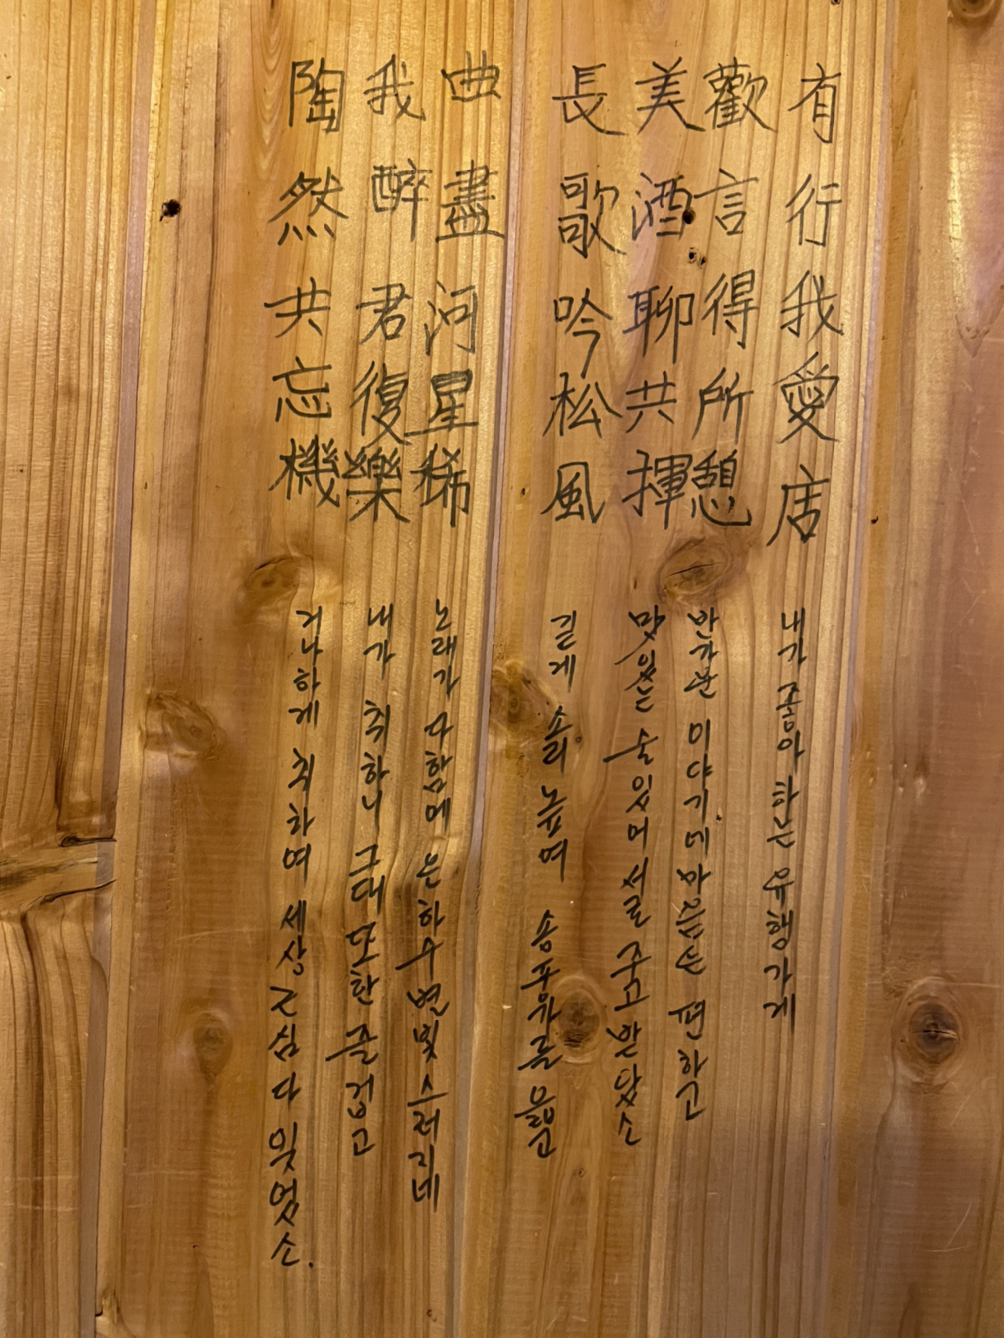 有行我愛店
내가 좋아하는 유행가게
歡言得所憩
반가운 이야기에 마음은 편하고
美酒聊共揮
맛있는 술 있어 서로 주고 받았소
長歌吟松風
길게 소리 높여 송풍가를 읊고
曲盡河星稀
노래가 다함에 은하수 별빛 스러지네
我醉君復樂
내가 취하니 그대 또한 즐겁고
陶然共忘機
거나하게 취하여 세상 근심 다 잊었소.